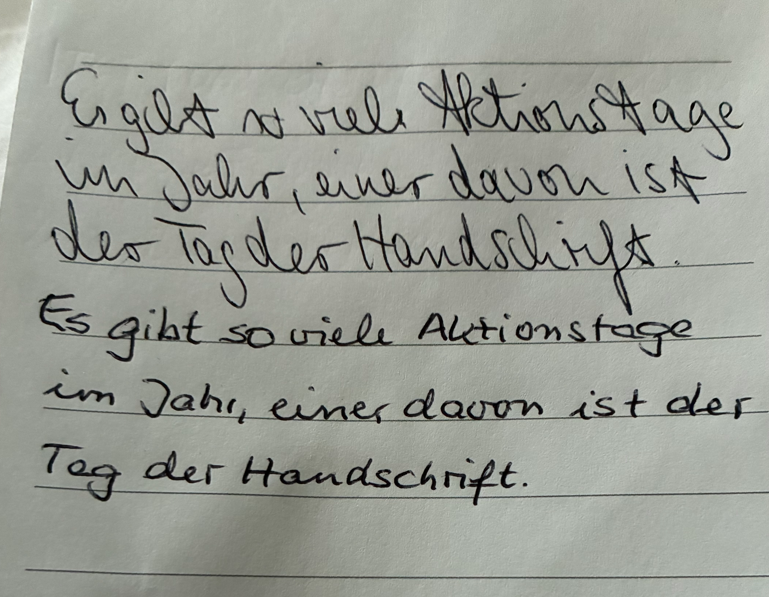 Es gibt so viele Aktionstage
im Jahr, einer davon ist
der Tag der Handschrift.
Es gibt so viele Aktionstage
im Jahr, einer davon ist der
Tag der Handschrift.